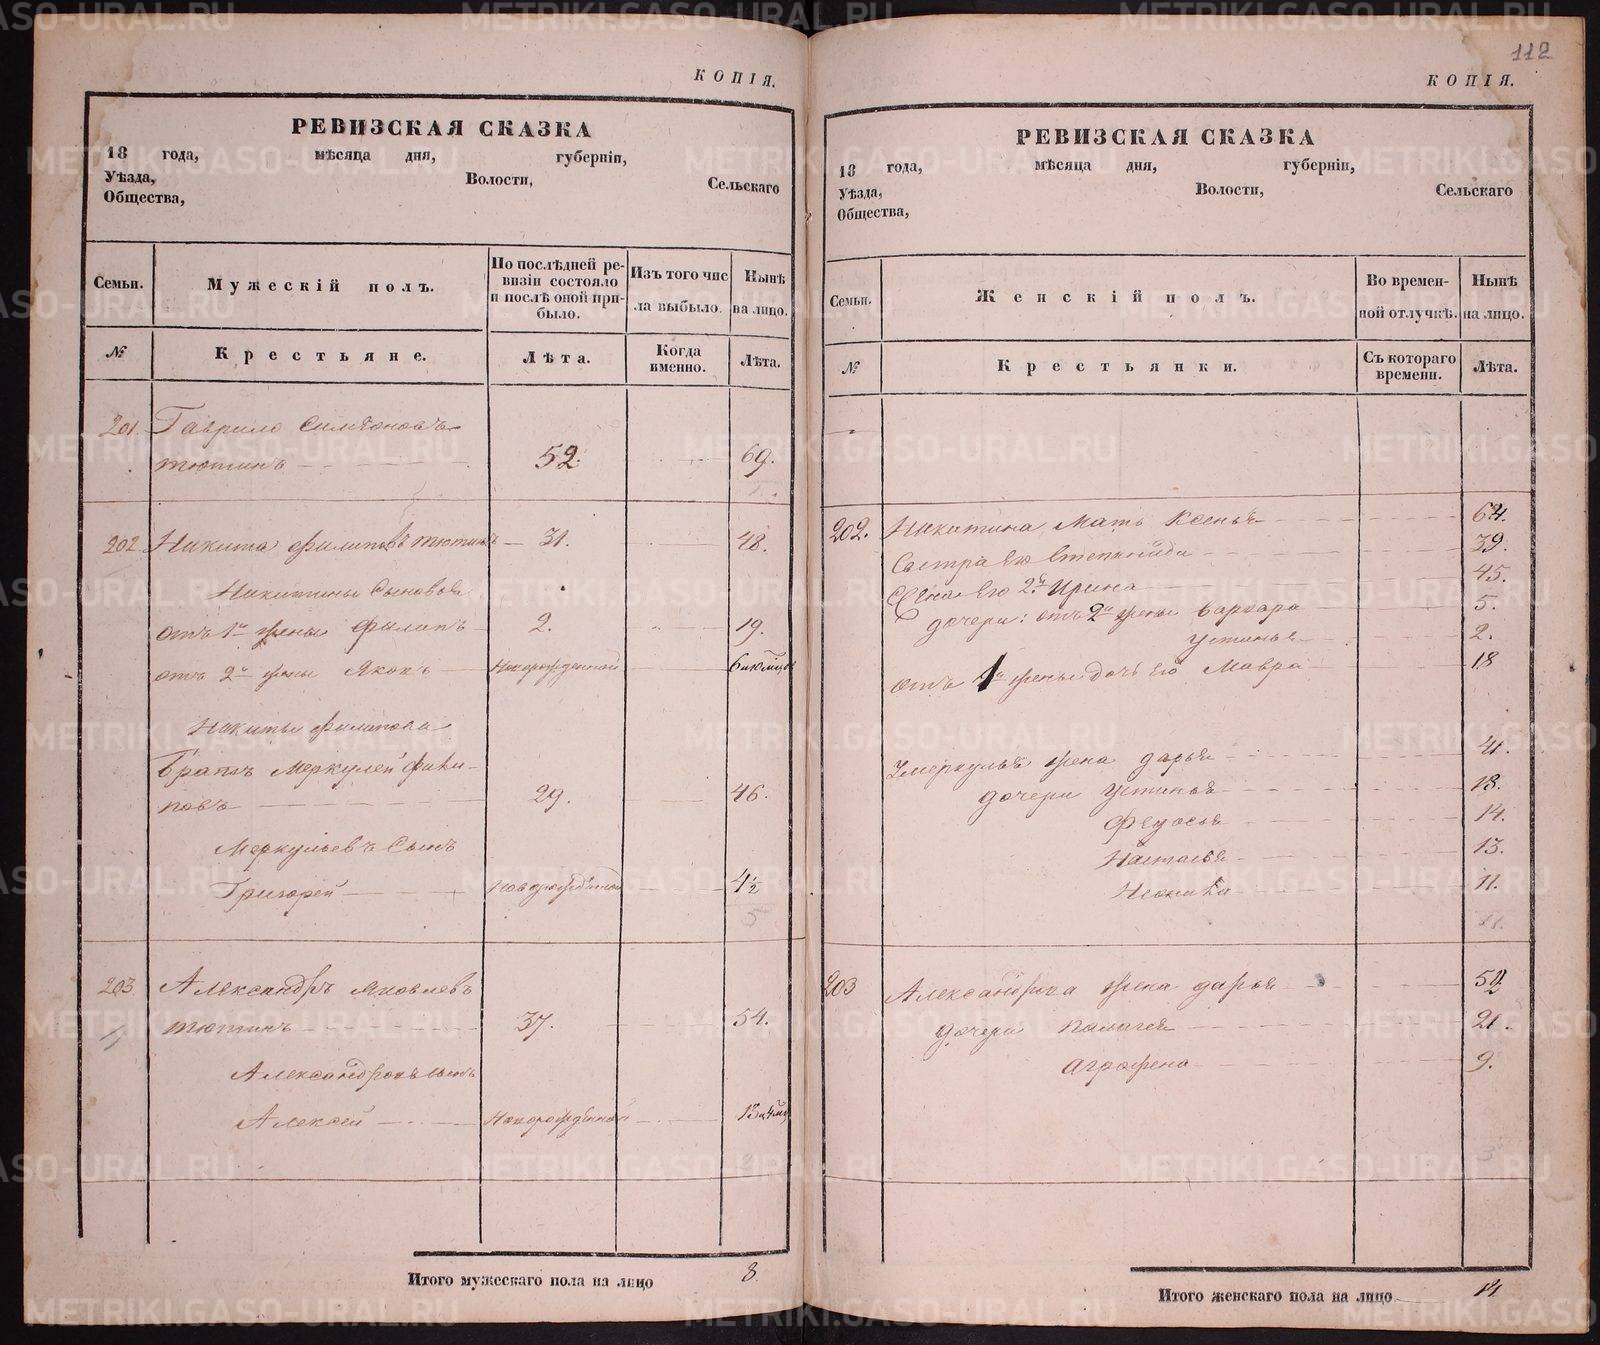 КОПІЯ.
РЕВИЗСКАЯ СКАЗКА
18 года, мѣсяца дня, губерніи,
Уѣзда, Волости, Сельскаго
Общества,
Семьи. Мужескій полъ. По послѣдней ревизіи состояло и послѣ оной прибыло. Изъ того числа выбыло. Нынѣ на лицо.
№ Крестьяне. Лѣта. Когда именно. Лѣта.
201. Гаврило Симеоновъ
тютинъ 52. 69.
202. Никита филиповъ тютинъ 31. 48.
Никитины Сыновья
отъ 1й жены филипъ 2. 19.
отъ 2й жены Яковъ Новорожденной
Никиты филипова
Братъ Меркулей фили-
повъ 29. 46.
Меркульевъ Сынъ
Григорей Новорожденной 4½
5
203 Александръ Яковлевъ
тютинъ 37. 54.
Александровъ сынъ
Алексей Новорожденной
Итого мужескаго пола на лицо 8.
112
КОПІЯ.
РЕВИЗСКАЯ СКАЗКА
18 года, мѣсяца дня, губерніи,
Уѣзда, Волости, Сельскаго
Общества,
Семьи. Женскій полъ. Во временной отлучкѣ. Нынѣ на лицо.
№ Крестьянки. Съ котораго времени. Лѣта.
202. Никитина Мать Ксенья 64.
Сестра его Степанида 39.
Жена его 2я Ирина 45.
дочери: отъ 2й жены Варвара 5.
Устинья 2.
отъ 1й жены дочь его Мавра 18
Умеркулья жена дарья 41.
дочери Устинья 18.
Федосья 14.
Настасья 13.
Неонила 11.
11.
203 Александрова жена дарья
дочери Палагея 21.
Аграфена 9.
3
Итого женскаго пола на лицо 14
METRIKI.GASO-URAL.RU